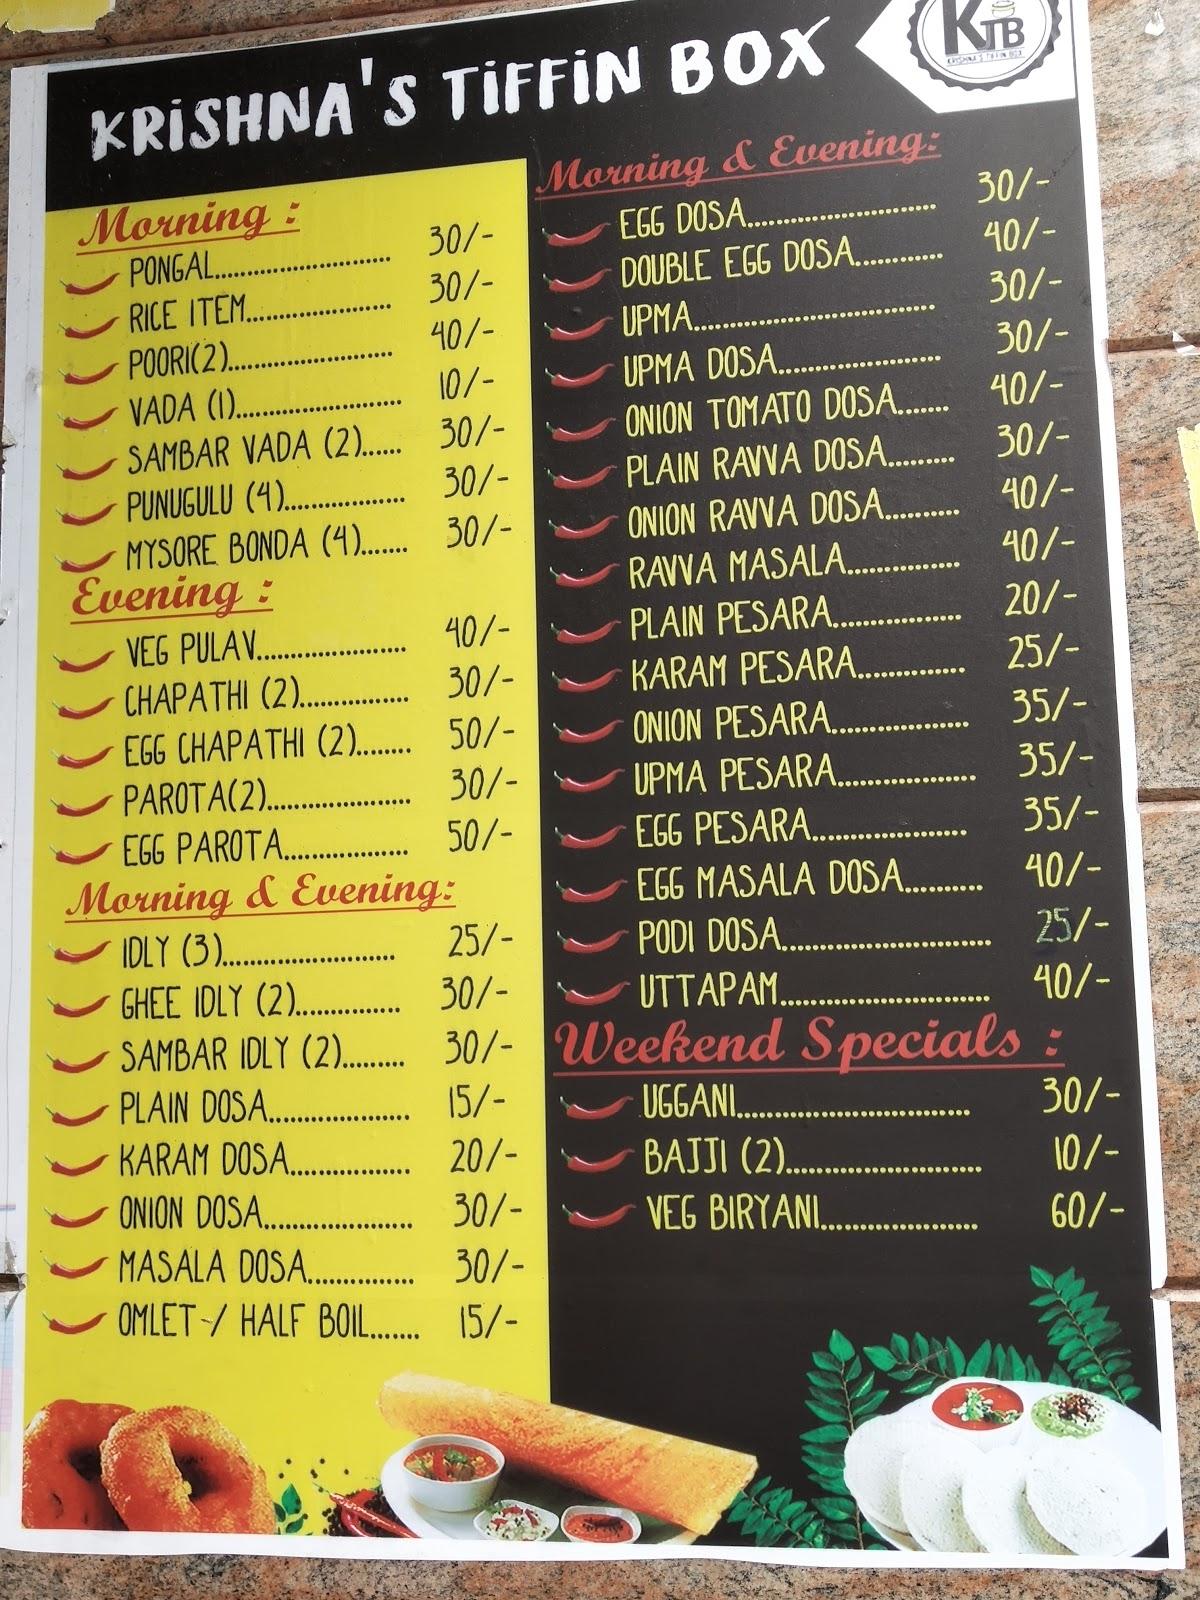 KRISHNA'S TIFFIN BOX
KTB
KRISHNA'S TIFFIN BOX
Morning :
PONGAL........................ 30/-
RICE ITEM.................... 30/-
POORI(2)...................... 40/-
VADA (1)...................... 10/-
SAMBAR VADA (2)...... 30/-
PUNUGULU (4)................ 30/-
MYSORE BONDA (4)....... 30/-
Evening :
VEG PULAV.................... 40/-
CHAPATHI (2)............... 30/-
EGG CHAPATHI (2)........ 50/-
PAROTA(2)................... 30/-
EGG PAROTA................. 50/-
Morning & Evening:
IDLY (3)....................... 25/-
GHEE IDLY (2)............. 30/-
SAMBAR IDLY (2)........ 30/-
PLAIN DOSA................. 15/-
KARAM DOSA............... 20/-
ONION DOSA................... 30/-
MASALA DOSA............. 30/-
OMLET-/ HALF BOIL....... 15/-
Morning & Evening:
EGG DOSA......................... 30/-
DOUBLE EGG DOSA............ 40/-
UPMA................................ 30/-
UPMA DOSA..................... 30/-
ONION TOMATO DOSA....... 40/-
PLAIN RAVVA DOSA......... 30/-
ONION RAVVA DOSA.......... 40/-
RAVVA MASALA.............. 40/-
PLAIN PESARA................. 20/-
KARAM PESARA.............. 25/-
ONION PESARA.................. 35/-
UPMA PESARA.................. 35/-
EGG PESARA.................... 35/-
EGG MASALA DOSA.......... 40/-
PODI DOSA........................... 25/-
UTTAPAM........................... 40/-
Weekend Specials :
UGGANI............................. 30/-
BAJJI (2)......................... 10/-
VEG BIRYANI................... 60/-